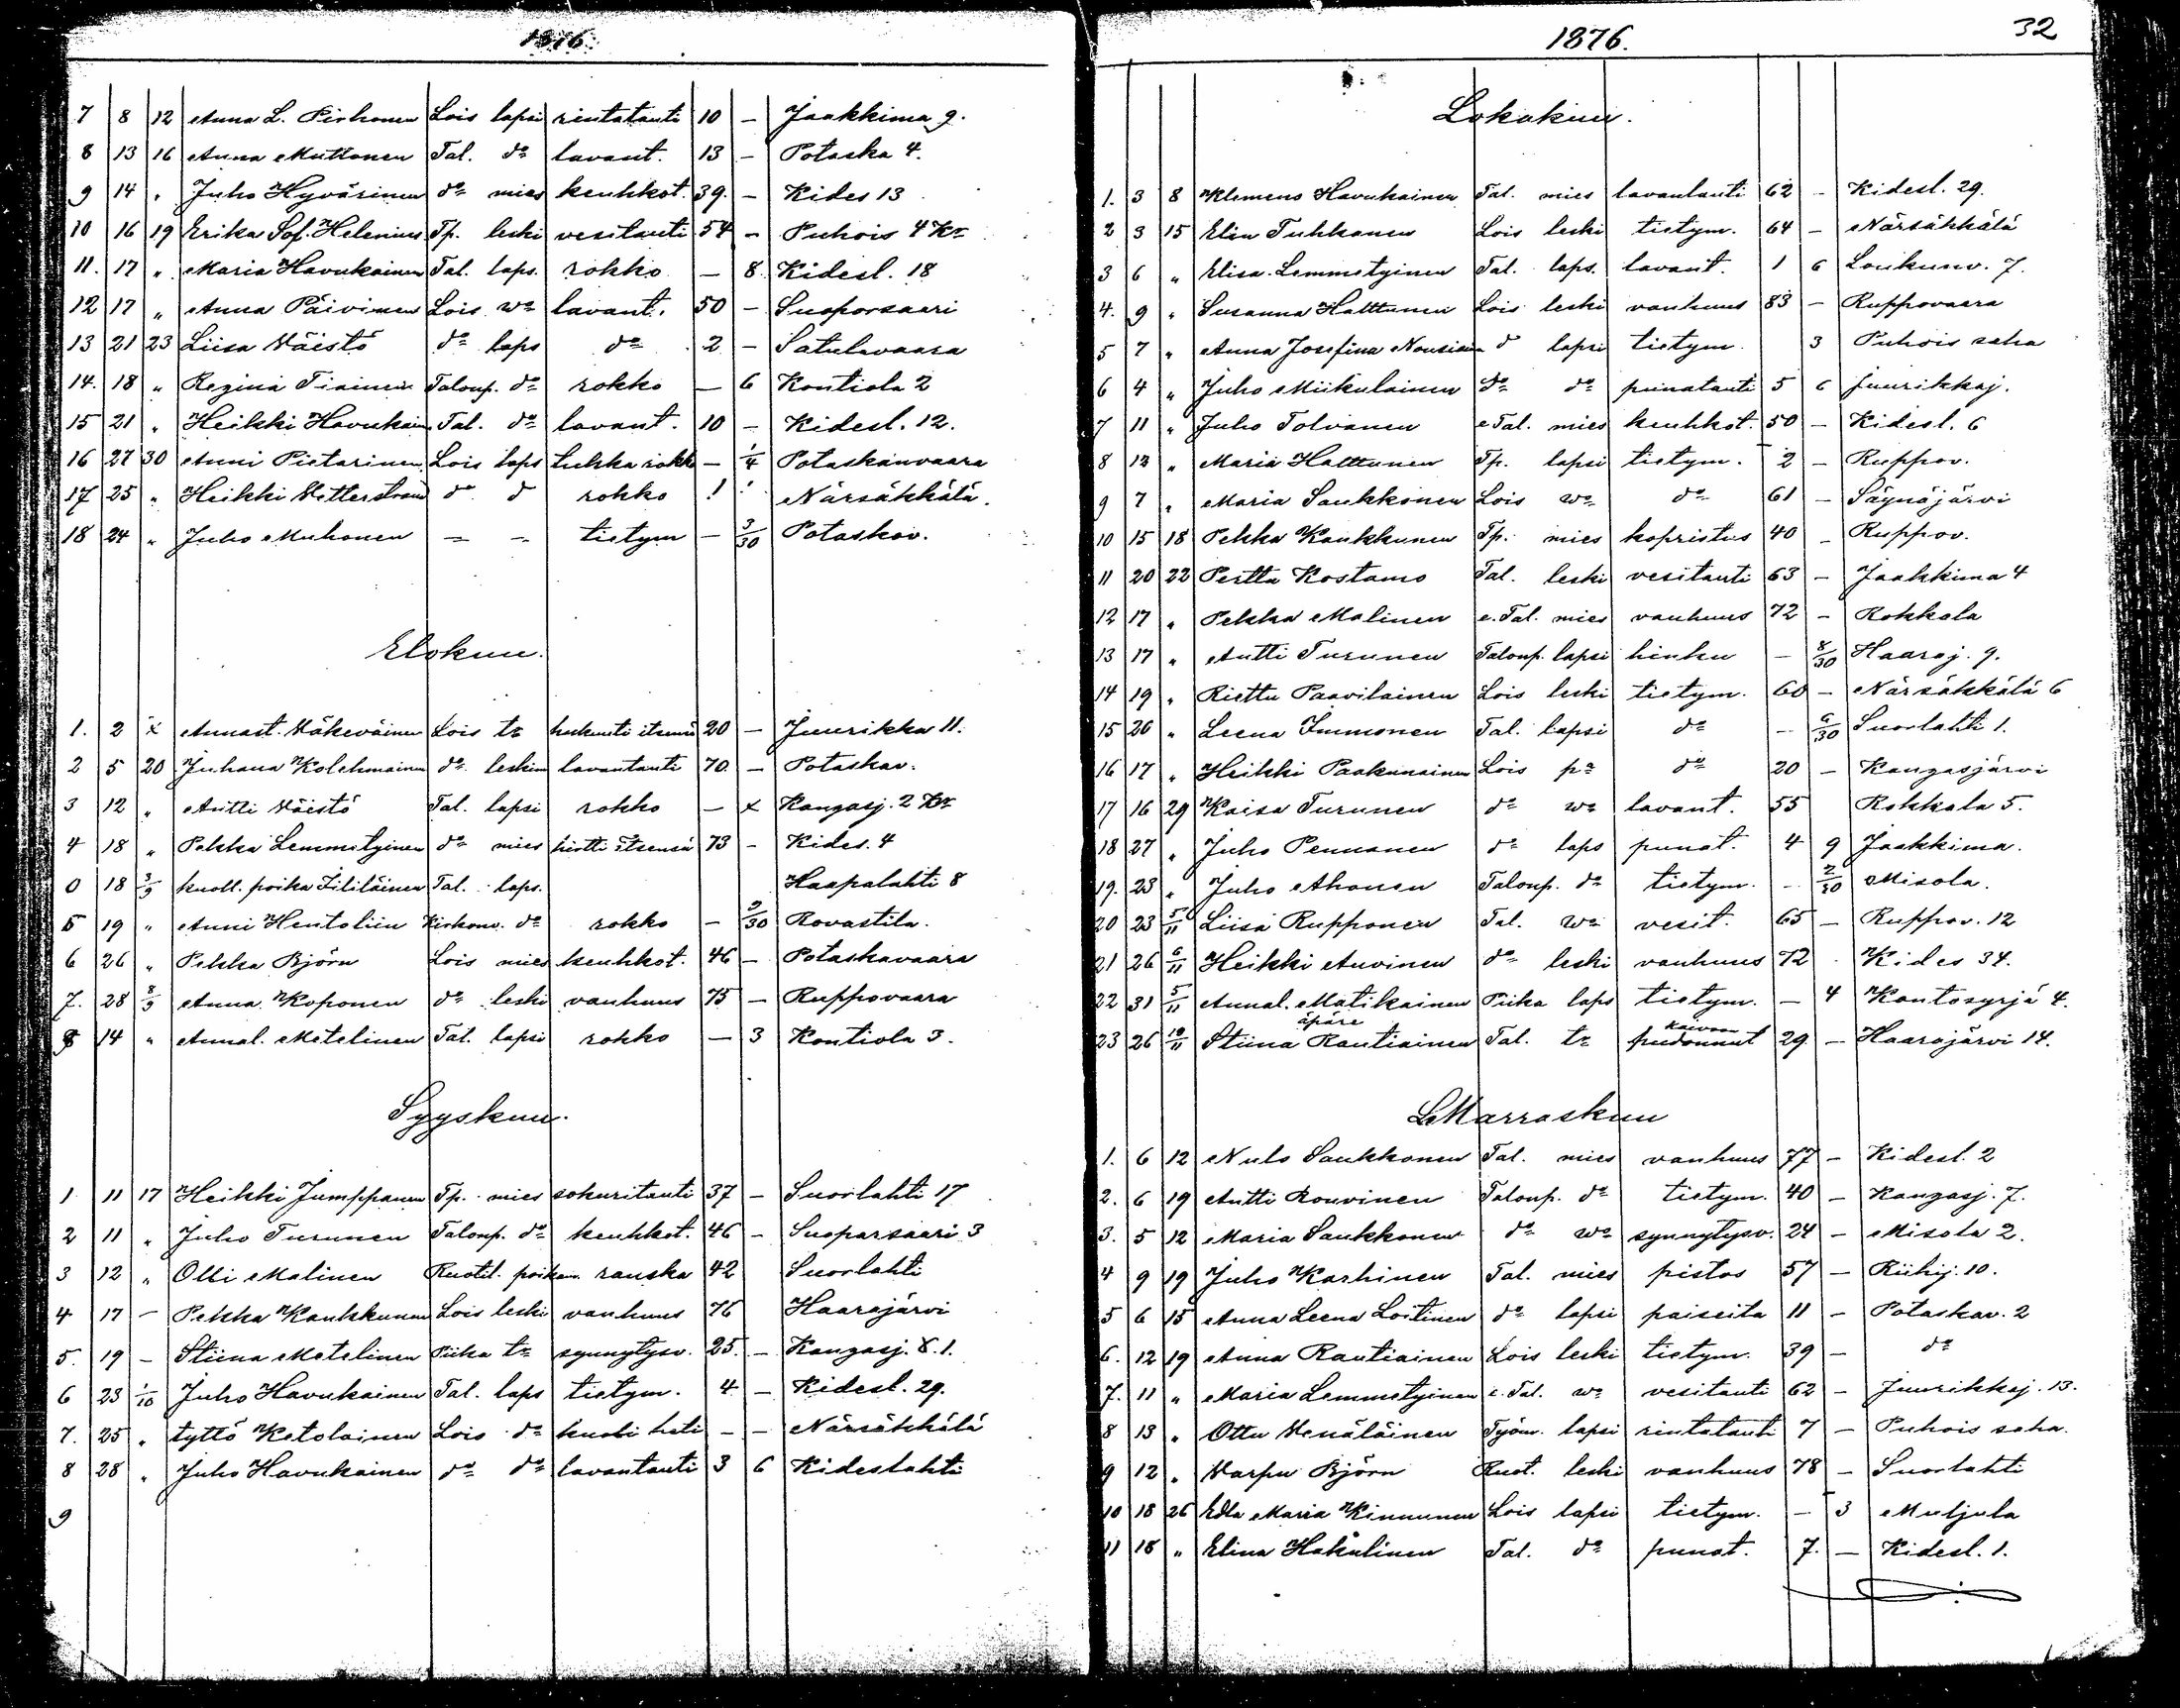 1876.
7 8 12 Anna L. Pirhonen Lois lapsi rintatauti 10 – Jaakkima 9.
8 13 16 Anna Muttonen Tal. do lavant. 13 – Potaska 4.
9 14 " Juho Hyvärinen do mies keuhkot. 39. – Kides 13
10 16 19 Erika Sof. Helenius Tp. leski vesitauti 54 – Puhois 4 Kr
11. 17 " Maria Havukainen Tal. laps. rokko – 8. Kidesl. 18
12 17 " Anna Päivinen Lois wo lavant. 50 – Suoporsaari
13 21 23 Liisa Väistö do laps do 2 – Satulavaara
14. 18 " Regina Tiainen Taloup. do rokko – 6 Kontiola 2
15 21 " Heikki Havukain Tal. do lavant. 10 – Kidesl. 12.
16 27 30 Anni Pietarinen Lois laps tuhka rokk – 1/4 Potaskanvaara
17 25 " Heikki Vetterstrand d d rokko ! ! Närsäkkälä.
18 24 " Juho Muhonen – – tietym – 3/30 Potaskav.
Elokuu.
1. 2 x Annast. Väkeväinen Lois tr hukutti itsensä 20 – Juurikka 11.
2 5 20 Juhana Kolehmainen do leskim lavantauti 70. – Potaskav.
3 12 " Antti Väistö Tal. lapsi rokko – x Kangasj. 2 Kr
4 18 " Pekka Lemmetyinen do mies hirtti itsensä 73 – Kides. 4
0 18 3/9 kuoll. poika Zililäinen Tal. laps. Haapalahti 8
5 19 " Anni Hentoliin Kirkonv. do rokko – 9/30 Rovastila.
6 26 " Pekka Björn Lois mies keuhkot. 46 – Potaskavaara
7. 28 8/9 Anna Koponen do leski vanhuus 75 – Ruppovaara
8 14 " Annal. Metelinen Tal. lapsi rokko – 3 Kontiola 3.
Syyskuu.
1 11 17 Heikki Jumppanen Tp. mies sokuritauti 37 – Suorlahti 17
2 11 " Juho Turunen Taloup. do keuhkot. 46 – Suoparsaari 3
3 12 " Olli Malinen Ruotil. poikam. rauska 42 Suorlahti
4 17 – Pekka Kaukkunen Lois leski vanhuus 76 Haarajärvi
5. 19 – Stiina Metelinen Piika tr synnytysv. 25. – Kangasj. 8.1.
6 23 1/10 Juho Havukainen Tal. laps tietym. 4 – Kidesl. 29.
7. 25 " tyttö Ketolainen Lois do kuoli heti – – Närsäkkälä
8 28 " Juho Havukainen do do lavantauti 3 6 Kideslahti
9
1876.
32
Lokakuu.
1. 3 8 Klemens Havukainen Tal. mies lavantauti 62 – Kidesl. 29.
2 3 15 Elin Tuhkanen Lois leski tietym. 64 – Närsäkkälä
3 6 " Elisa Lemmetyinen Tal. laps. lavant. 1 6 Loukunv. 7.
4. 9 " Susanna Halttunen Lois leski vanhuus 83 – Ruppovaara
5 7 " Anna Josefina Nousiain d lapsi tietym. 3 Puhois saha
6 4 " Juho Miikulainen do do punatauti 5 6 Juurikkaj.
7 11 " Juho Tolvanen e Tal. mies keuhkot. 50 – Kidesl. 6
8 12 " Maria Halttunen Tp. lapsi tietym. 2 – Ruppov.
9 7 " Maria Saukkonen Lois wo do 61 – Säynäjärvi
10 15 18 Pekka Kaukkunen Tp. mies kopristus 40 – Ruppov.
11 20 22 Pertta Kostamo Tal. leski vesitauti 63 – Jaakkima 4
12 17 " Pekka Malinen e. Tal. mies vanhuus 72 – Rokkala
13 17 " Antti Turunen Taloup. lapsi hinku – 8/30 Haaraj. 9.
14 19 " Riettu Paavilainen Lois leski tietym. 60 – Närsäkkälä 6
15 26 " Leena Immonen Tal. lapsi do – 6/30 Suorlahti 1.
16 17 " Heikki Paakunainen Lois po do 20 – Kangasjärvi
17 16 29 Kaisa Turunen do wo lavant. 55 Rokkala 5.
18 27 " Juho Pennanen do laps punat. 4 9 Jaakkima.
19. 23 " Juho Ahonen Taloup. do tietym. – 2/30 Misola.
20 23 5/11 Liisa Rupponen Tal. wo vesit. 65 – Ruppov. 12
21 26 6/11 Heikki Auvinen do leski vanhuus 72 Kides 34.
22 31 5/11 Annal. Matikainen Piika laps tietym. – 4 Kontosyrjä 4.
äpäre
23 26 10/11 Stiina Rautiainen Tal. tr kaivoon pudonnut 29 – Haarajärvi 14.
Marraskuu
1. 6 12 Nulo Saukkonen Tal. mies vanhuus 77 – Kidesl. 2
2. 6 19 Antti Rouvinen Taloup. do tietym. 40 – Kangasj. 7.
3. 5 12 Maria Saukkonen do wo synnytysv. 24 – Misola 2.
4 9 19 Juho Karhinen Tal. mies pistos 57 – Riihij. 10.
5 6 15 Anna Leena Loitinen do lapsi paiseita 11 – Potaskav. 2
6. 12 19 Anna Rautiainen Lois leski tietym. 39 – do
7. 11 " Maria Lemmetyinen e. Tal. wo vesitauti 62 – Juurikkaj. 13.
8 13 " Ottu Venäläinen Työm. lapsi rintatauti 7 – Puhois saha.
9 12 " Varpu Björn Ruot. leski vanhuus 78 – Suorlahti
10 18 26 Edla Maria Kinnunen Lois lapsi tietym. – 3 Muljula
11 18 " Elina Hakulinen Tal. do punat. 7. – Kidesl. 1.